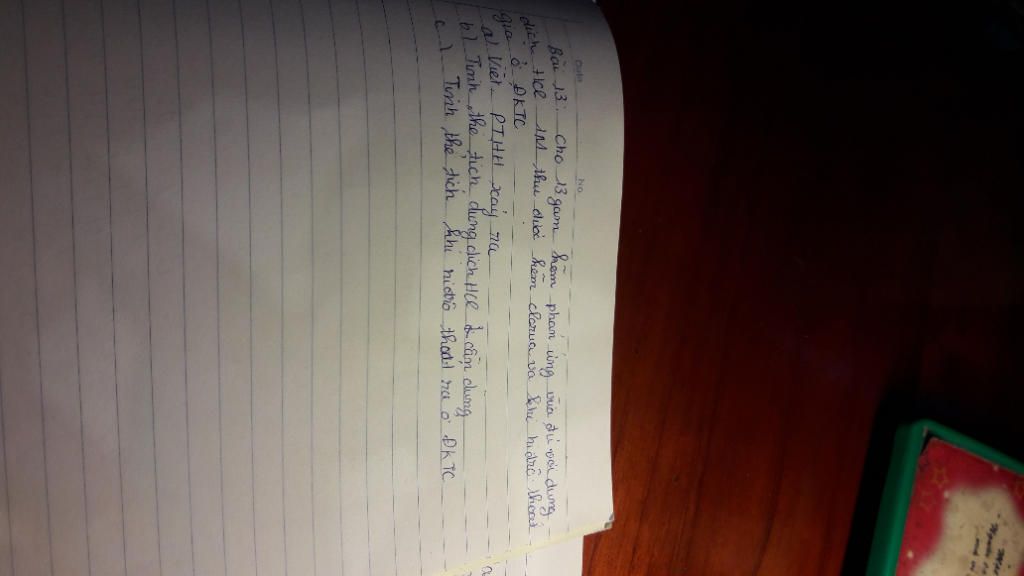 Date
No.
Bài 13: Cho 13 gam kẽm phản ứng vừa đủ với dung
dịch HCl 1M thu được kẽm clorua và khí hiđrô thoát
ra ở ĐKTC
a) Viết PTHH xảy ra
b) Tính thể tích dung dịch HCl cần dùng
c.) Tính thể tích khí hiđrô thoát ra ở ĐKTC